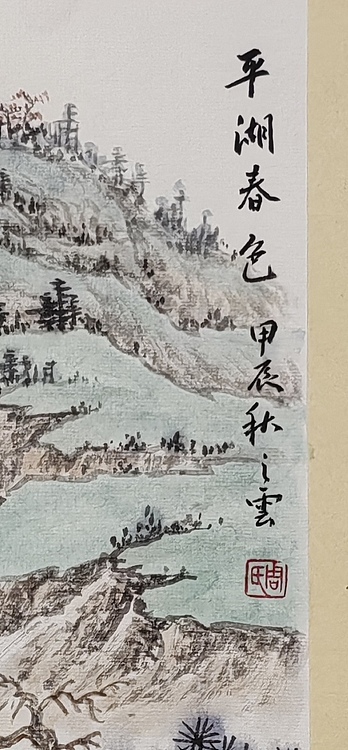 平湖春色 甲辰秋之雲
周氏